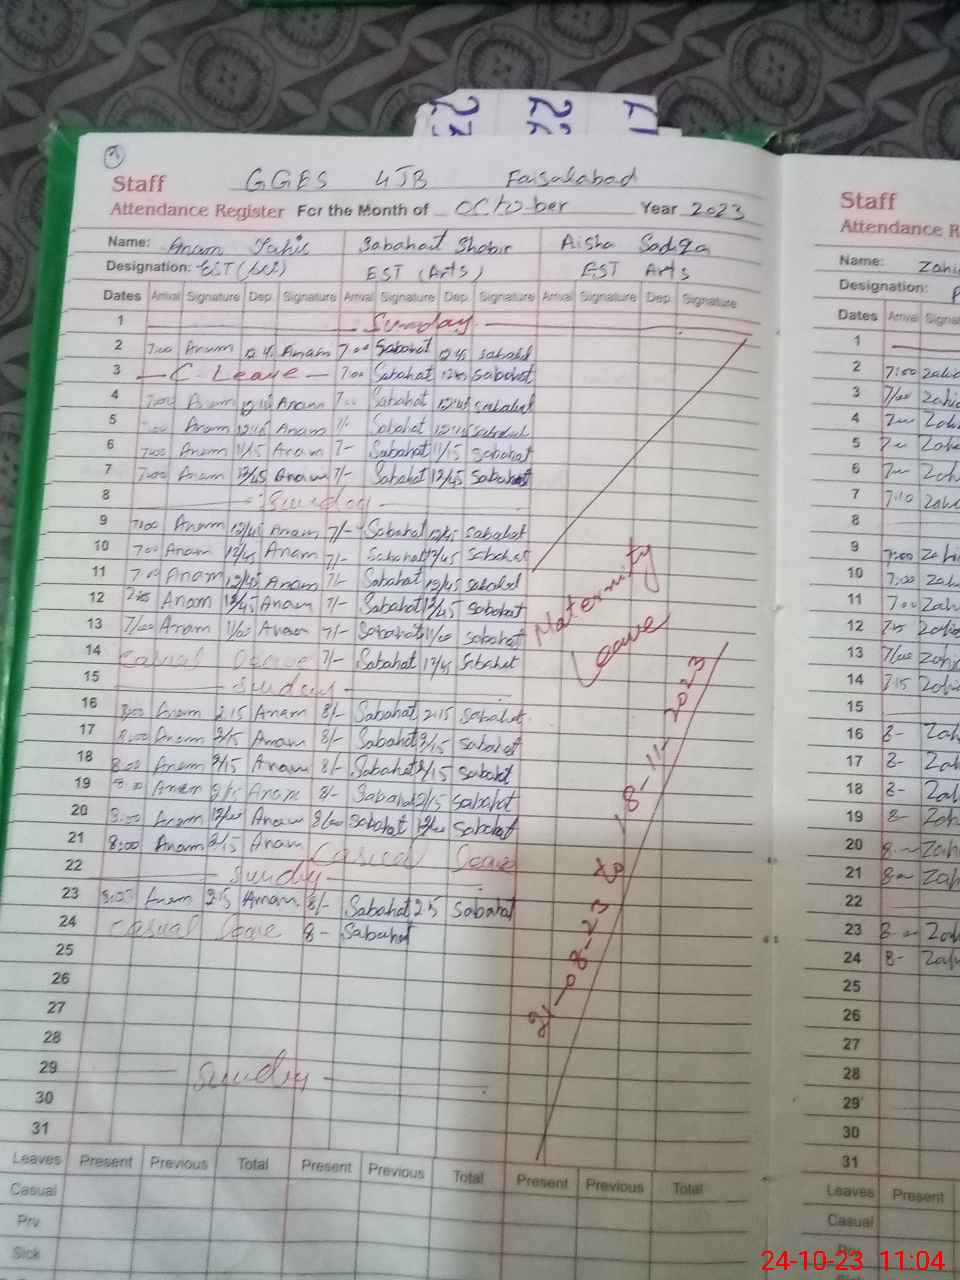 Staff GGES 4JB Faisalabad
Attendance Register For the Month of October Year 2023
Name: Anam Tahir Sabahat Shabir Aisha Sadiqa
Designation: EST EST (Arts) EST Arts
Dates Arrival Signature Dep. Signature Arrival Signature Dep. Signature Arrival Signature Dep. Signature
1 Sunday
2 7:00 Anam 12 45 Anam 7 00 Sabahat 12 45 Sabahat
3 C. Leave 7:00 Sabahat 12:45 Sabahat
4 7:00 Anam 12 45 Anam 7:00 Sabahat 12:45 Sabahat
5 Anam 12:45 Anam 7/- Sabahat 12:45 Sabahat
6 7:00 Anam 11/15 Anam 7- Sabahat 11/15 Sabahat
7 7:00 Anam 12/45 Anam 7/- Sabahat 12/45 Sabahat
8 Sunday
9 7:00 Anam 12/45 Anam 7/- Sabahat 12/45 Sabahat
10 7:00 Anam 12/45 Anam 7/- Sabahat 12/45 Sabahat
11 7:00 Anam 12/45 Anam 7/- Sabahat 12/45 Sabahat
12 Anam 12/45 Anam 7/- Sabahat 12/45 Sabahat
13 7/00 Anam 11/00 Anam 7/- Sabahat 11/00 Sabahat
14 Casual Leave 7/- Sabahat 12/45 Sabahat
15 Sunday
16 8:00 Anam 2:15 Anam 8/- Sabahat 2:15 Sabahat
17 8:00 Anam 2/15 Anam 8/- Sabahat 2/15 Sabahat
18 8:00 Anam 2/15 Anam 8/- Sabahat 2/15 Sabahat
19 8:00 Anam 2/15 Anam 8/- Sabahat 2/15 Sabahat
20 8:00 Anam 12/00 Anam 8/00 Sabahat 12/00 Sabahat
21 8:00 Anam 2/15 Anam Casual Leave
22 Sunday
23 8:00 Anam 2:15 Anam 8/- Sabahat 2:15 Sabahat
24 Casual Leave 8- Sabahat
25
26
27
28
29 Sunday
30
31
Maternity
Leave
21-08-23 to 18-11-2023
Leaves Present Previous Total Present Previous Total Present Previous Total
Casual
Prv
Sick
Staff
Attendance
Name:
Designation:
Dates Arrival
1
2 7:00
3 7/00
4
5
6
7 7:10
8
9 7:00
10 7:00
11 7:00
12
13 7/00
14 7:15
15
16 8-
17 8-
18 8-
19 8-
20
21
22
23
24 8-
25
26
27
28
29
30
31
Leaves Present
Casual
24-10-23 11:04